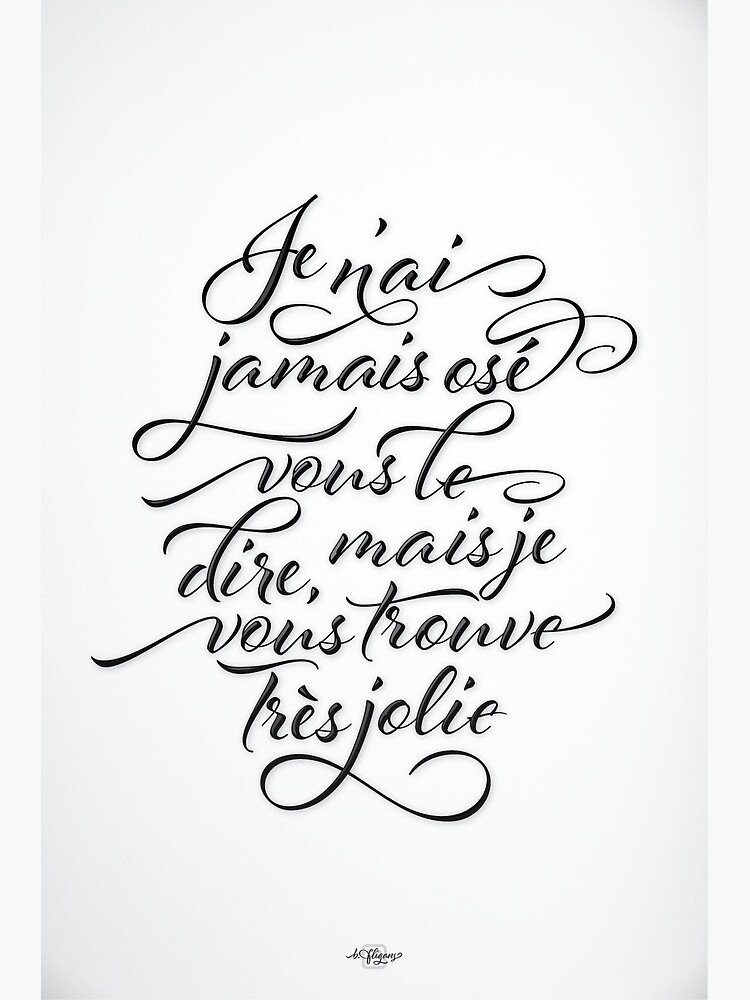 Je n'ai
jamais osé
vous le
dire, mais je
vous trouve
très jolie